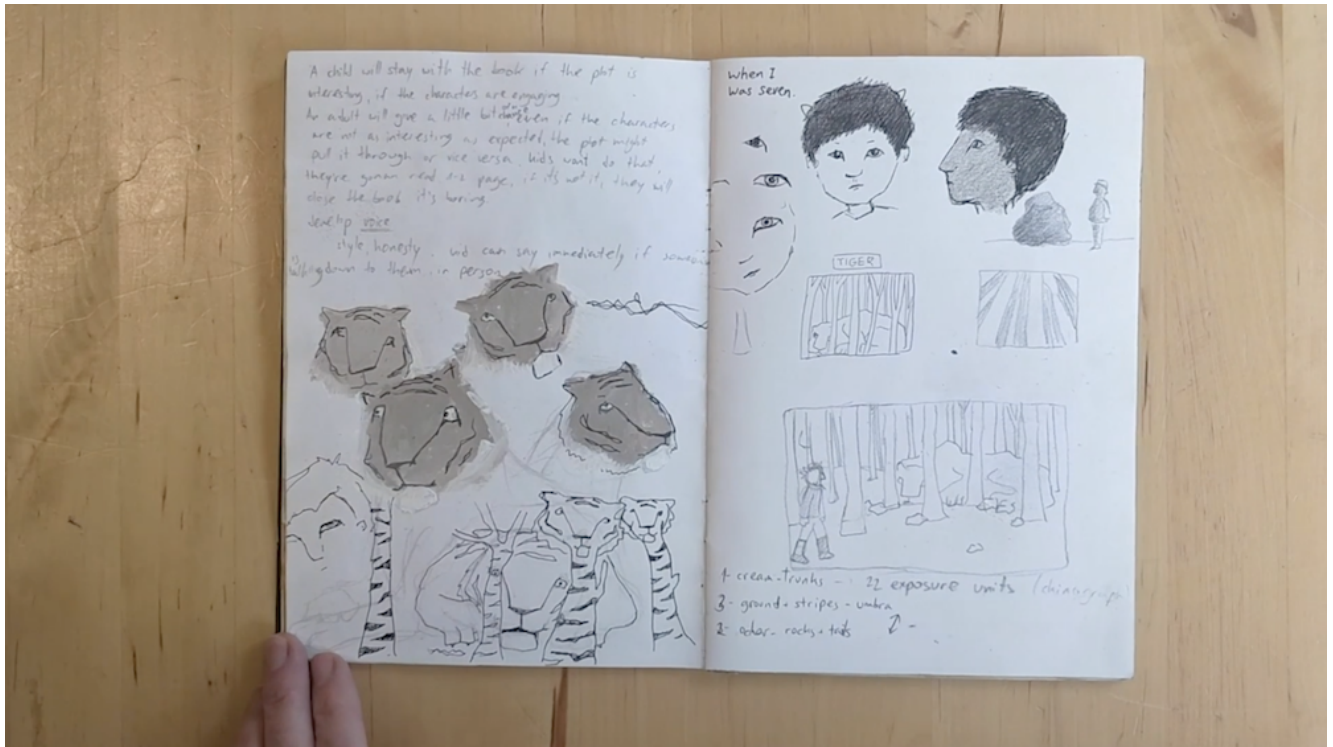 A child will stay with the book if the plot is
interesting, if the characters are engaging
An adult will give a little bit even if the characters
are not as interesting as expected, the plot might
pull it through or vice versa. kids want do that,
they're gonna read page, if it's not it, they will
close the book it's boring.
voice
style, honesty. can say immediately if someone
is talking down to them, in person
when I
was seven.
TIGER
1- cream-trunks - 22 exposure units
3- ground + stripes - umbra
2- ocher- rocks +